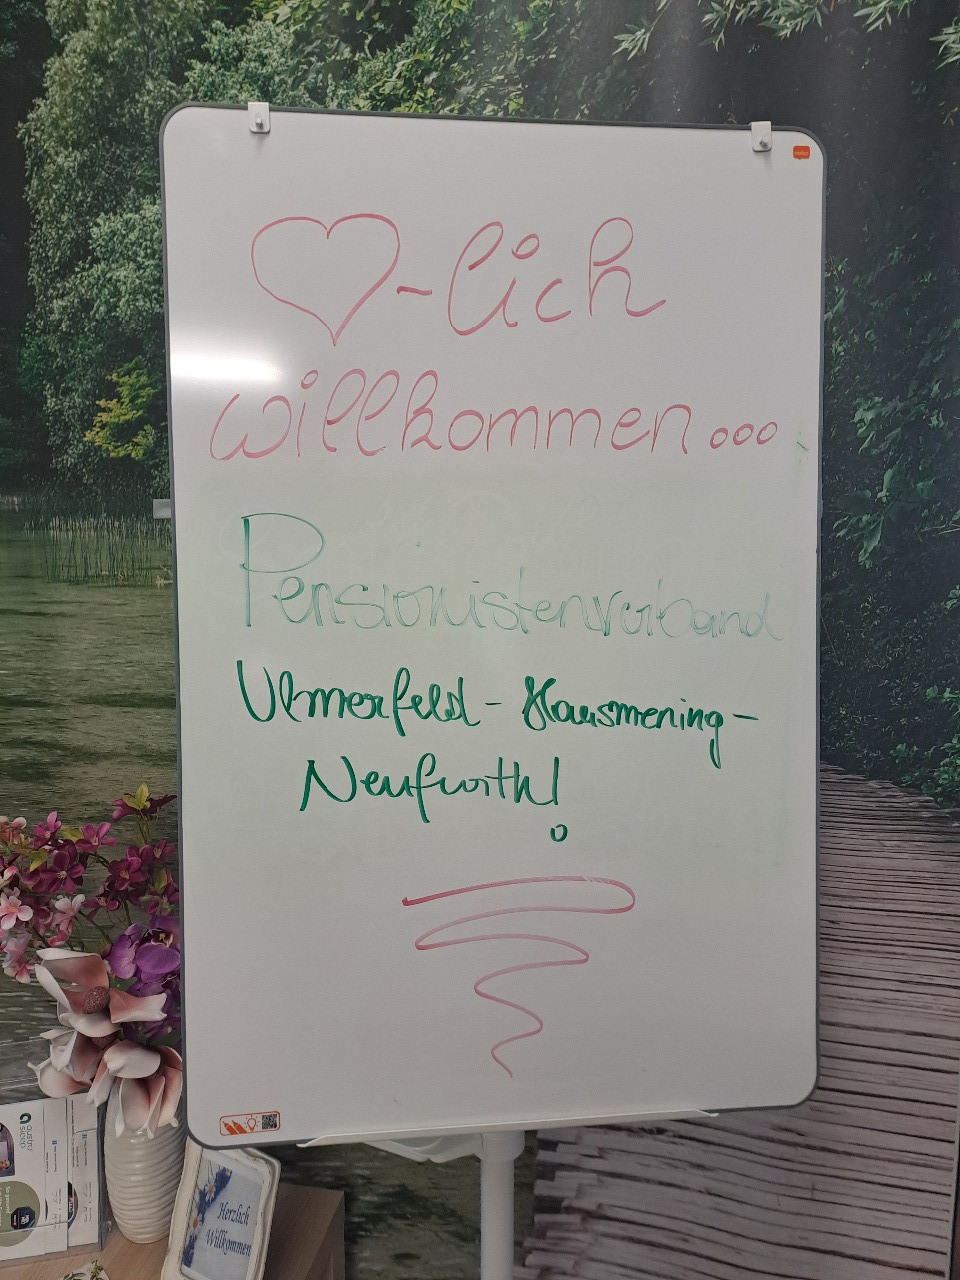 ♡-lich
willkommen...
Pensionistenverband
Ulmerfeld-Hausmening-
Neufurth!
Herzlich
Willkommen